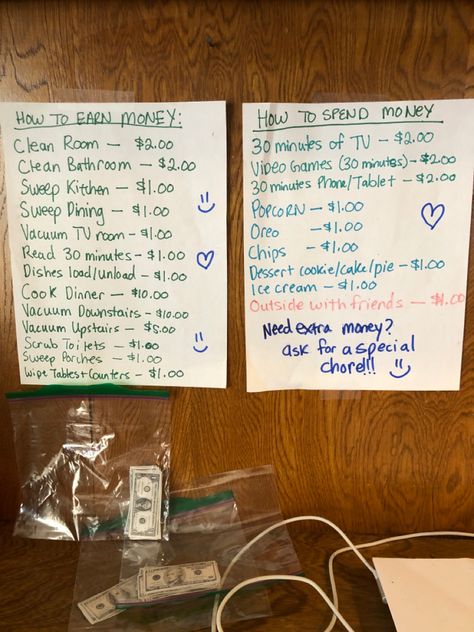 HOW TO EARN MONEY:
Clean Room - $2.00
Clean Bathroom - $2.00
Sweep Kitchen - $1.00
Sweep Dining - $1.00
Vacuum TV room - $1.00
Read 30 minutes - $1.00
Dishes load/unload - $1.00
Cook Dinner - $10.00
Vacuum Downstairs - $10.00
Vacuum Upstairs - $5.00
Scrub Toilets - $1.00
Sweep Porches - $1.00
Wipe Tables + Counters - $1.00
HOW TO SPEND MONEY
30 minutes of TV - $2.00
Video Games (30 minutes) - $2.00
30 minutes Phone/Tablet - $2.00
POPCORN - $1.00
Oreo - $1.00
Chips - $1.00
Dessert cookie/cake/pie - $1.00
Ice cream - $1.00
Outside with friends - $1.00
Need extra money?
ask for a special
chore!!!